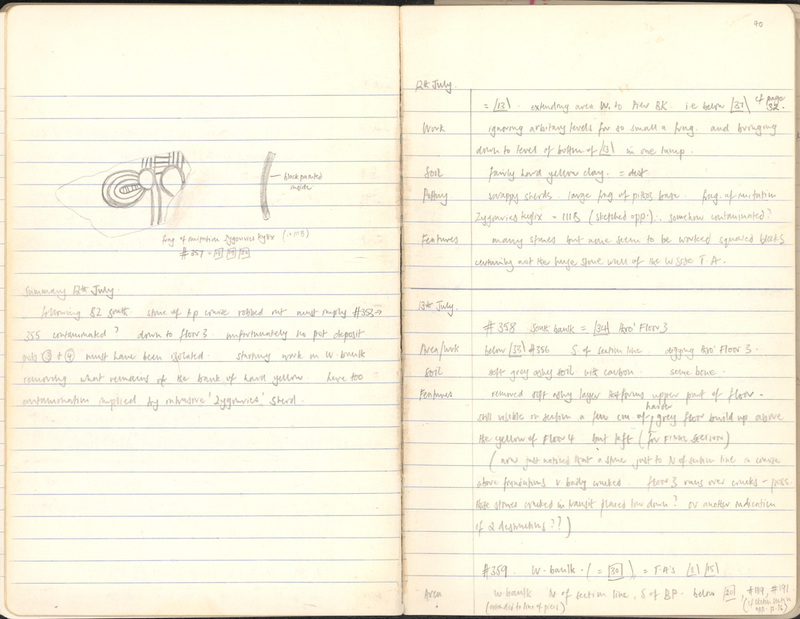 black painted
inside
frag of imitation Zygouries kylix (= IIIB)
#357 =
Summary 12th July.
following B2 south stone of top course robbed out must imply #353 →
355 contaminated? down to floor 3 unfortunately no pot deposit
pots 3 + 4 must have been isolated. starting work in W baulk
removing what remains of the bank of hard yellow. here too
contamination implied by intrusive 'Zygouries' sherd.
90
12th July.
= /13\ extending area W. to Mev BK. i.e. below /37\ cf page 32.
Work ignoring arbitrary levels for so small a frag. and bringing
down to level of bottom of /13\ in one lump.
Soil fairly hard yellow clay. =
Pottery scrappy sherds large frag of pithos base. frag. of imitation
Zygouries kylix = IIIB (sketched opp.). somehow contaminated?
Features many stones but none seem to be worked squared blocks
certainly not the huge stone wall of the W side T.A.
13th July.
#358 South baulk = /34\ thro' Floor 3
Area/work below /33\ #356 S of section line. digging thro' Floor 3.
Soil soft grey ashy soil with carbon. some bone.
Features removed soft ashy layer that forms upper part of floor.
still visible in section a few cm of harder grey floor build up above
the yellow of Floor 4 but left (for final section)
(now just noticed that a stone just to N of section line in course
above foundations is badly cracked. floor 3 runs over cracks –
these stones cracked in transit placed low down? or another indication
of 2 destructions??)
#359. W. baulk. (= 30) = T.A's /2\ /15\
Area W baulk N of section line, S of BP. below 20, #189, #191
(extended to line of pithos)